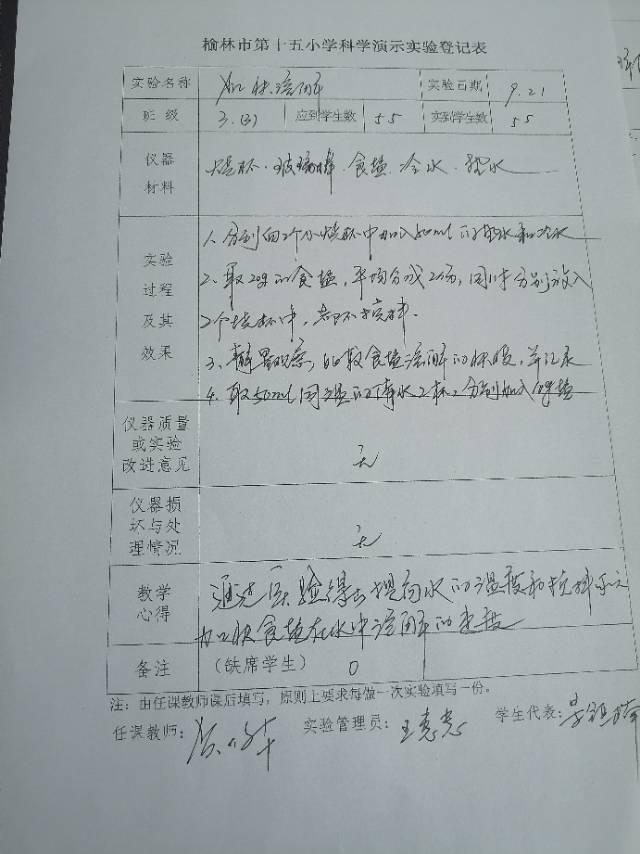 榆林市第十五小学科学演示实验登记表
实验名称 加快溶解 实验日期 9.21
班级 3.(3) 应到学生数 55 实到学生数 55
仪器材料 烧杯.玻璃棒.食盐.冷水.热水
实验过程及其效果
1、分别向2个小烧杯中加入50ml的热水和冷水
2、取20g的食盐,平均分成2份,同时分别放入
2个烧杯中,都不搅拌.
3、静置观察,比较食盐溶解的快慢,并记录
4、取50ml同温的清水2杯,分别加入食盐
仪器质量或实验改进意见 无
仪器损坏与处理情况 无
教学心得 通过实验得出提高水的温度和搅拌可以
加快食盐在水中溶解的速度
备注 (缺席学生) 0
注:由任课教师课后填写,原则上要求每做一次实验填写一份。
任课教师: 实验管理员:王惠惠 学生代表: